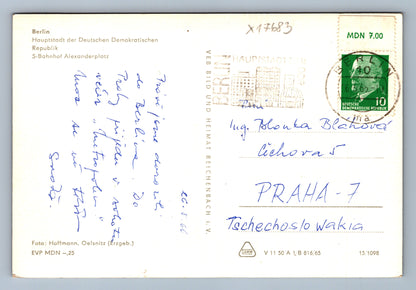 Berlin
Hauptstadt der Deutschen Demokratischen
Republik
S-Bahnhof Alexanderplatz
X17683
MDN 7.00
BERLIN
HAUPTSTADT
10
DEUTSCHE
DEMOKRATISCHE REPUBLIK
26.8.66
Právě jsme dorazili
do Berlína. Do
Prahy přijedu v sobotu
Ing. Blanka Bláhová
Čechova 5
PRAHA-7
Tschechoslowakia
VEB BILD UND HEIMAT REICHENBACH i. V.
Foto: Hoffmann, Oelsnitz (Erzgeb.)
EVP MDN –,25
V 11 50 A 1/B 816/65
13 1098